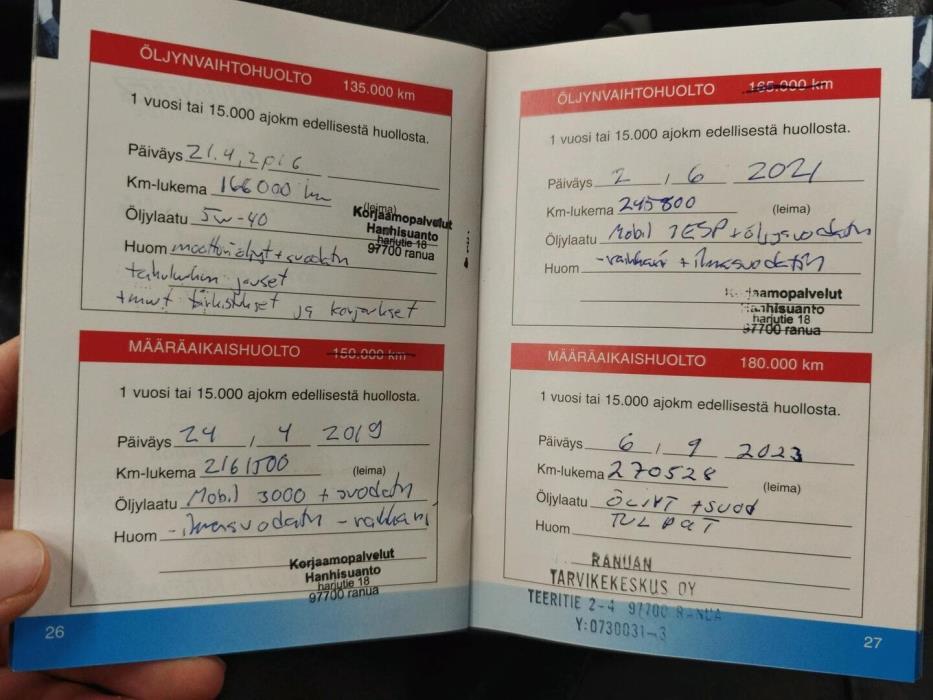 ÖLJYNVAIHTOHUOLTO 135.000 km
1 vuosi tai 15.000 ajokm edellisestä huollosta.
Päiväys 21.4, 2016
Km-lukema 166000 km
(leima)
Öljylaatu 5w-40
Huom moottoriöljyt + suodatin
jouset
+ muut tarkistukset ja korjaukset
Korjaamopalvelut
Hanhisuanto
harjutie 18
97700 ranua
MÄÄRÄAIKAISHUOLTO 150.000 km
1 vuosi tai 15.000 ajokm edellisestä huollosta.
Päiväys 24 / 4 2019
Km-lukema 216 500
(leima)
Öljylaatu Mobil 3000 + suodatin
Huom - ilmasuodatin - raikkari
Korjaamopalvelut
Hanhisuanto
harjutie 18
97700 ranua
26
ÖLJYNVAIHTOHUOLTO 165.000 km
1 vuosi tai 15.000 ajokm edellisestä huollosta.
Päiväys 2 / 6 2021
Km-lukema 245800
(leima)
Öljylaatu Mobil ESP + öljysuodatin
Huom - raikkari + ilmasuodatin
Korjaamopalvelut
Hanhisuanto
harjutie 18
97700 ranua
MÄÄRÄAIKAISHUOLTO 180.000 km
1 vuosi tai 15.000 ajokm edellisestä huollosta.
Päiväys 6 / 9 2023
Km-lukema 270528
(leima)
Öljylaatu ÖLJYT + suod
Huom TULPAT
RANUAN
TARVIKEKESKUS OY
TEERITIE 2-4 97700 RANUA
Y:0730031-3
27